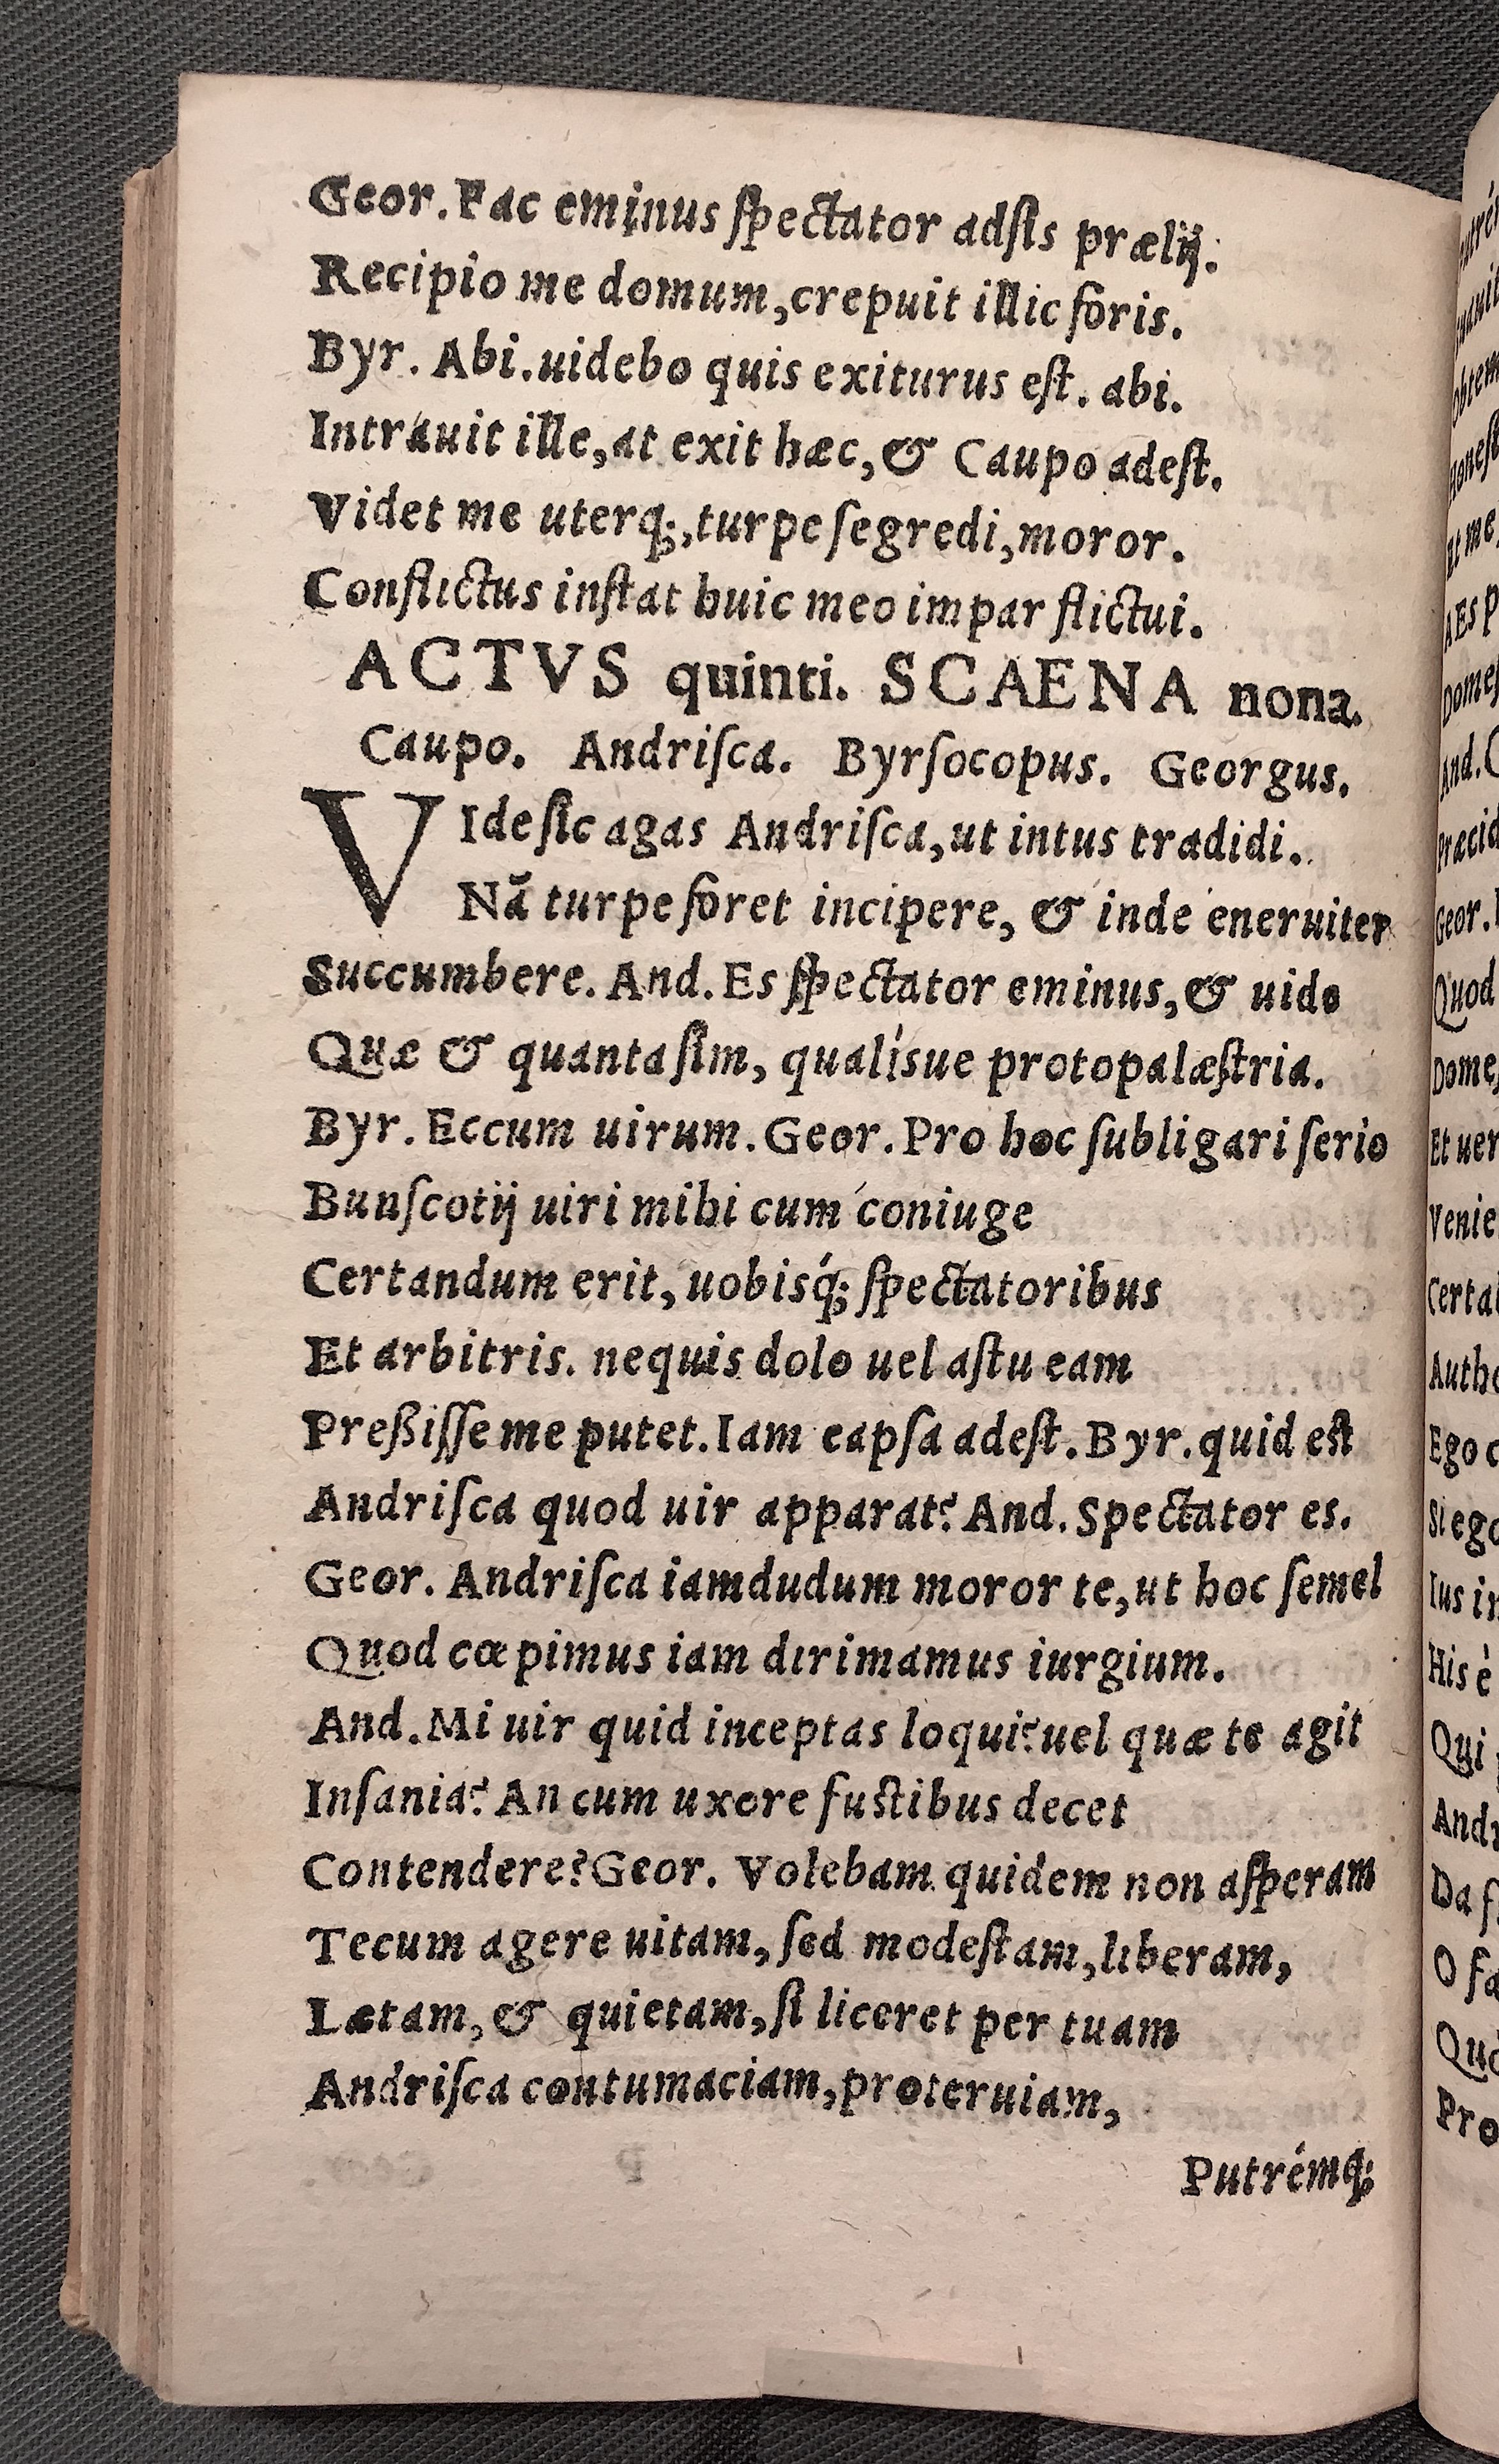 Geor. Fac eminus ſpectator adſis prælij.
Recipio me domum, crepuit illic foris.
Byr. Abi. uidebo quis exiturus eſt. abi.
Intrauit ille, at exit hæc, & Caupo adeſt.
Videt me uterq;, turpe ſegredi, moror.
Conflictus inſtat huic meo impar flictui.
ACTVS quinti. SCAENA nona.
Caupo. Andriſca. Byrſocopus. Georgus.
VIde ſic agas Andriſca, ut intus tradidi.
Nã turpe foret incipere, & inde eneruiter
Succumbere. And. Es ſpectator eminus, & uide
Quæ & quanta ſim, qualísue protopalæſtria.
Byr. Eccum uirum. Geor. Pro hoc ſubligari ſerio
Bunſcotij uiri mihi cum coniuge
Certandum erit, uobisq́; ſpectatoribus
Et arbitris. nequis dolo uel aſtu eam
Preßiſſe me putet. Iam eapſa adeſt. Byr. quid eſt
Andriſca quod uir apparat? And. Spectator es.
Geor. Andriſca iamdudum moror te, ut hoc ſemel
Quod cœpimus iam dirimamus iurgium.
And. Mi uir quid inceptas loqui? uel quæ te agit
Inſania? An cum uxore fuſtibus decet
Contendere? Geor. Volebam quidem non aſperam
Tecum agere uitam, ſed modeſtam, liberam,
Lætam, & quietam, ſi liceret per tuam
Andriſca contumaciam, proteruiam,
Putrémq;